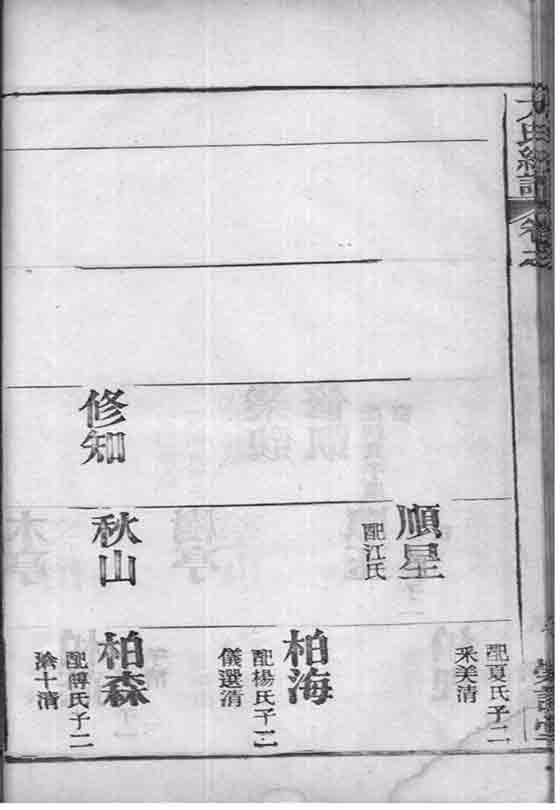 氏經訂
卷之
配夏氏子二
采美清
順星
配江氏
柏海
配楊氏子二
儀選清
修知
秋山
柏森
配傅氏子二
淦十清